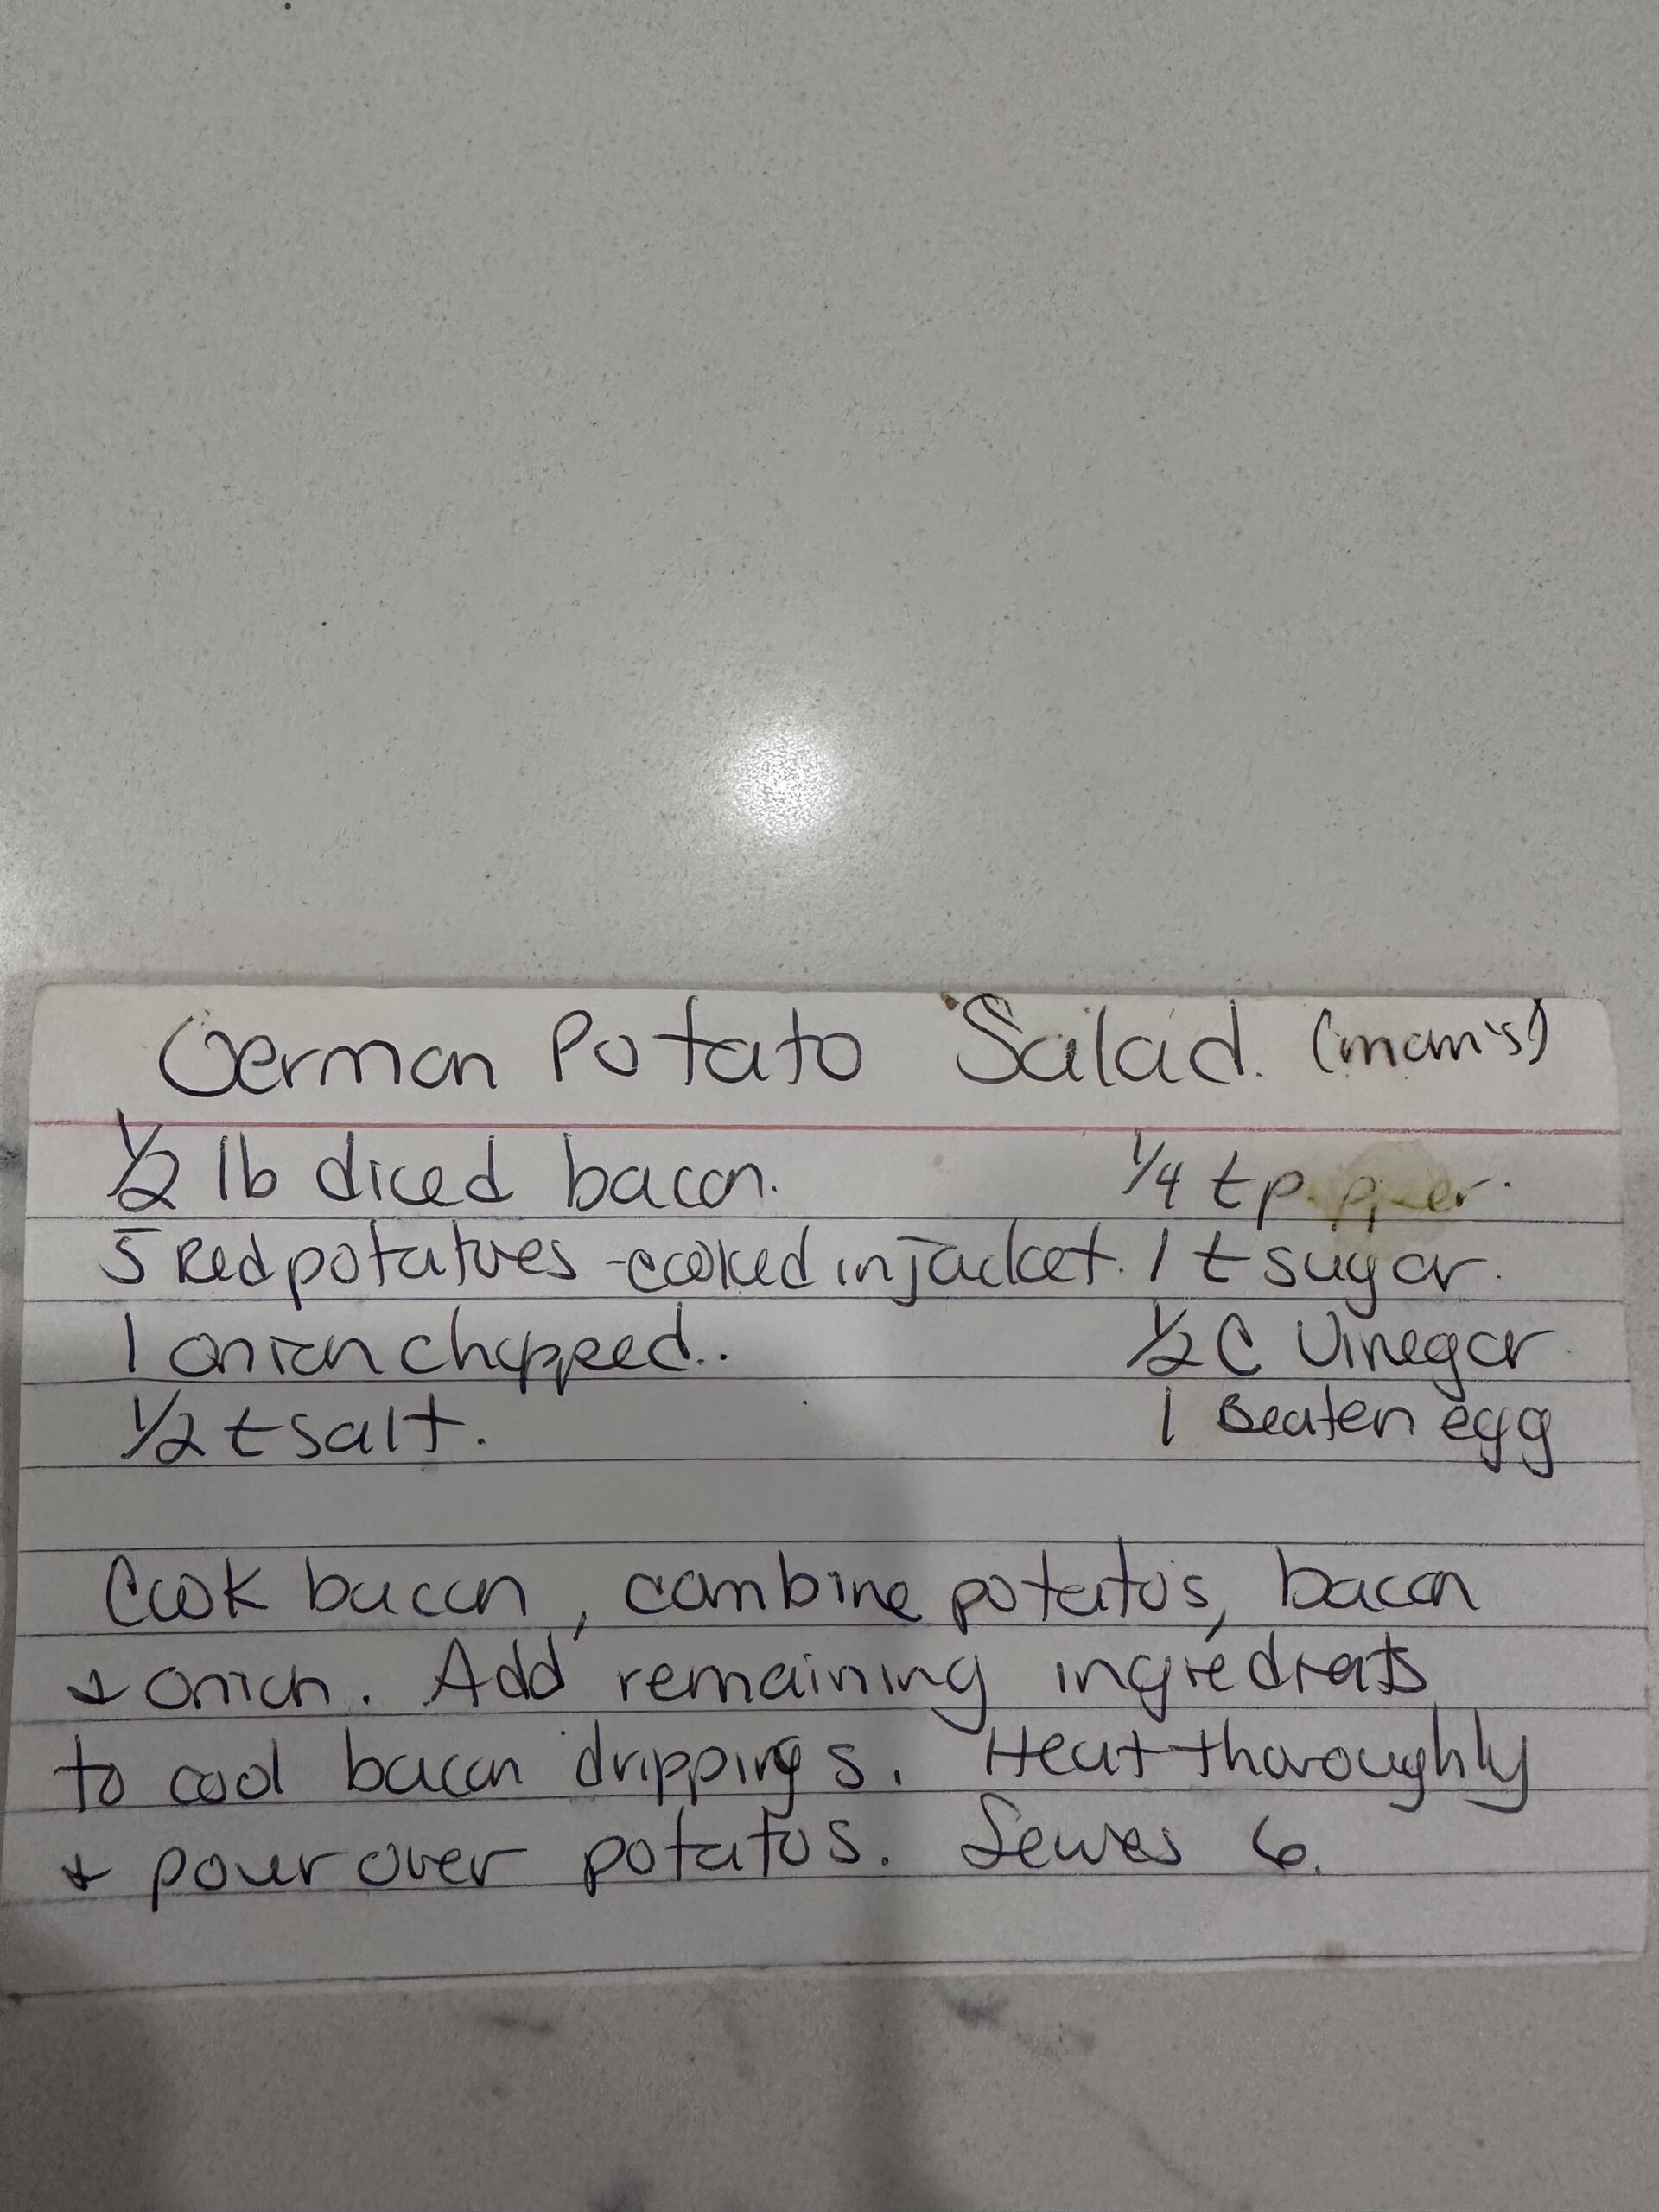 German Potato Salad. (mom's)
1/2 lb diced bacon. 1/4 t pepper.
5 Red potatoes - cooked in jacket. 1 t sugar.
1 onion chopped..
1/2 C Vinegar
1/2 t salt.
1 Beaten egg
Cook bacon, combine potatos, bacon
& onion. Add remaining ingredients
to cool bacon drippings. Heat thoroughly
& pour over potatos. Serves 6.